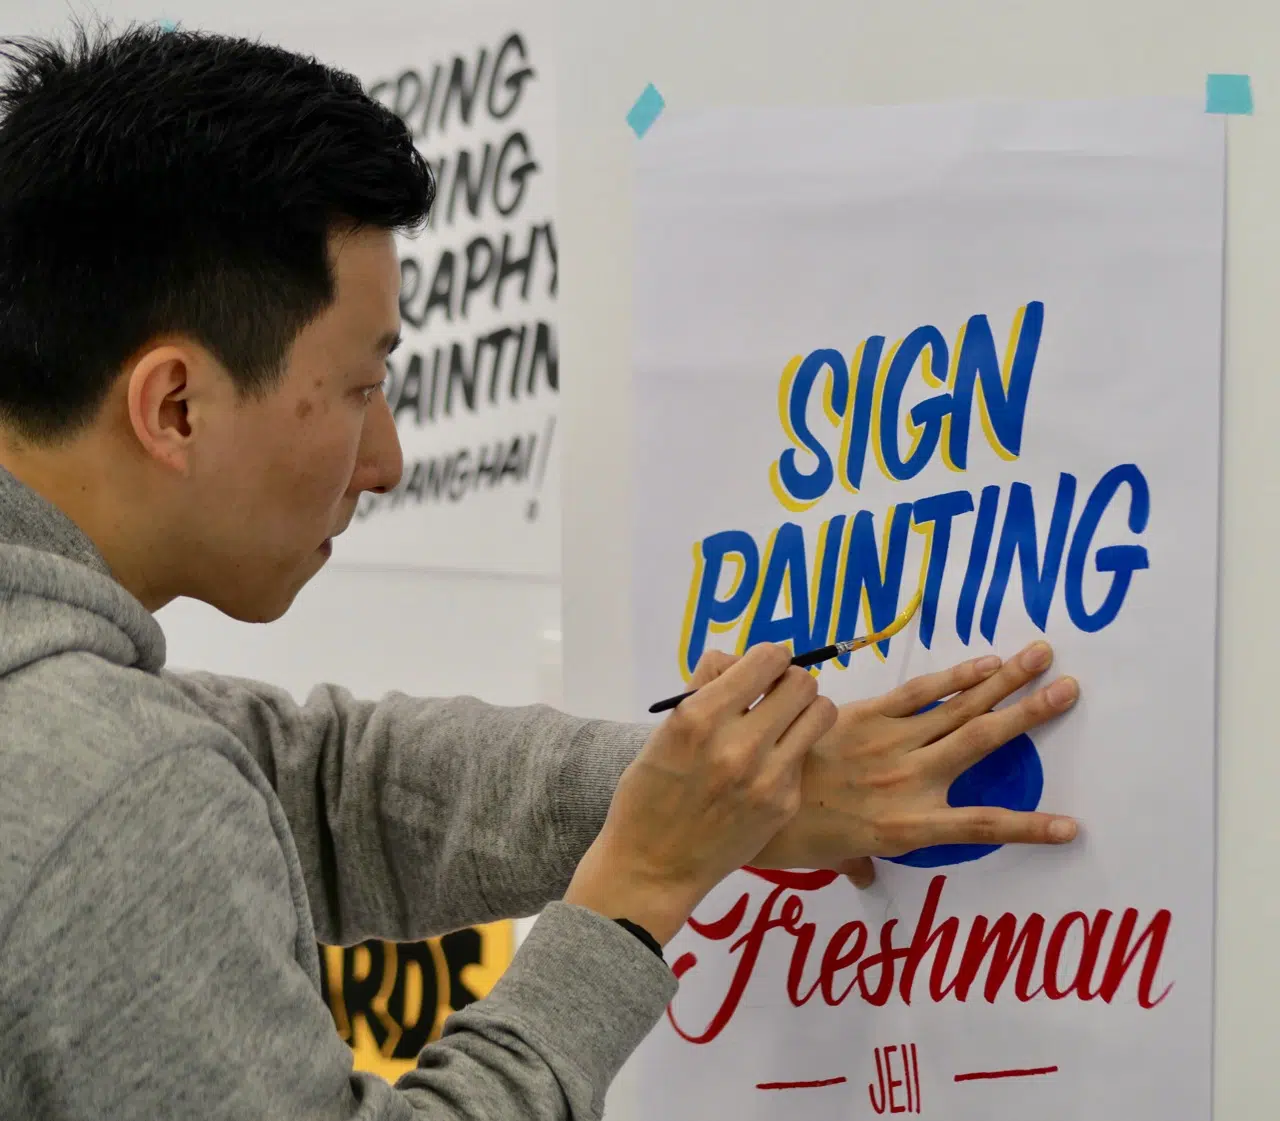 ERING
ING
RAPHY
PAINTIN
SHANGHAI!
SIGN
PAINTING
Freshman
JEll